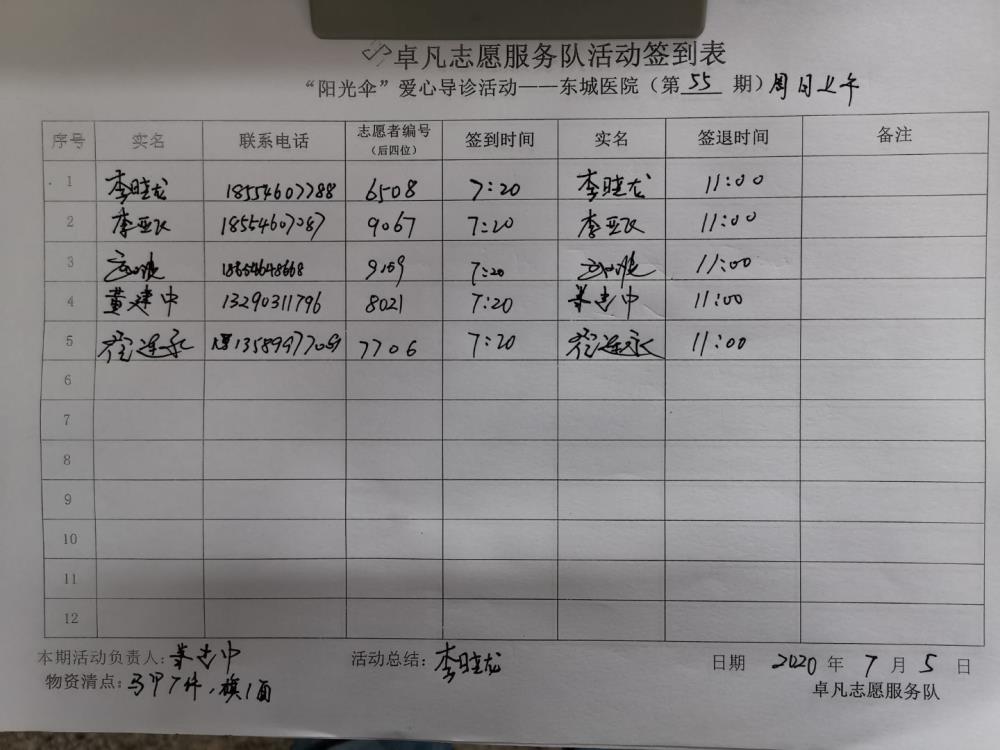 卓凡志愿服务队活动签到表
“阳光伞”爱心导诊活动——东城医院（第 55 期）周日上午
序号 实名 联系电话 志愿者编号（后四位） 签到时间 实名 签退时间 备注
1 李晓龙 18554607788 6508 7:20 李晓龙 11:00
2 李亚飞 18554607087 9067 7:20 李亚飞 11:00
3 18654648668 9109 7:20 11:00
4 黄建中 13290311796 8021 7:20 黄建中 11:00
5 7706 7:20 11:00
6
7
8
9
10
11
12
本期活动负责人：黄建中 活动总结：李晓龙 日期 2020 年 7 月 5 日
物资清点：马甲7件，旗1面 卓凡志愿服务队